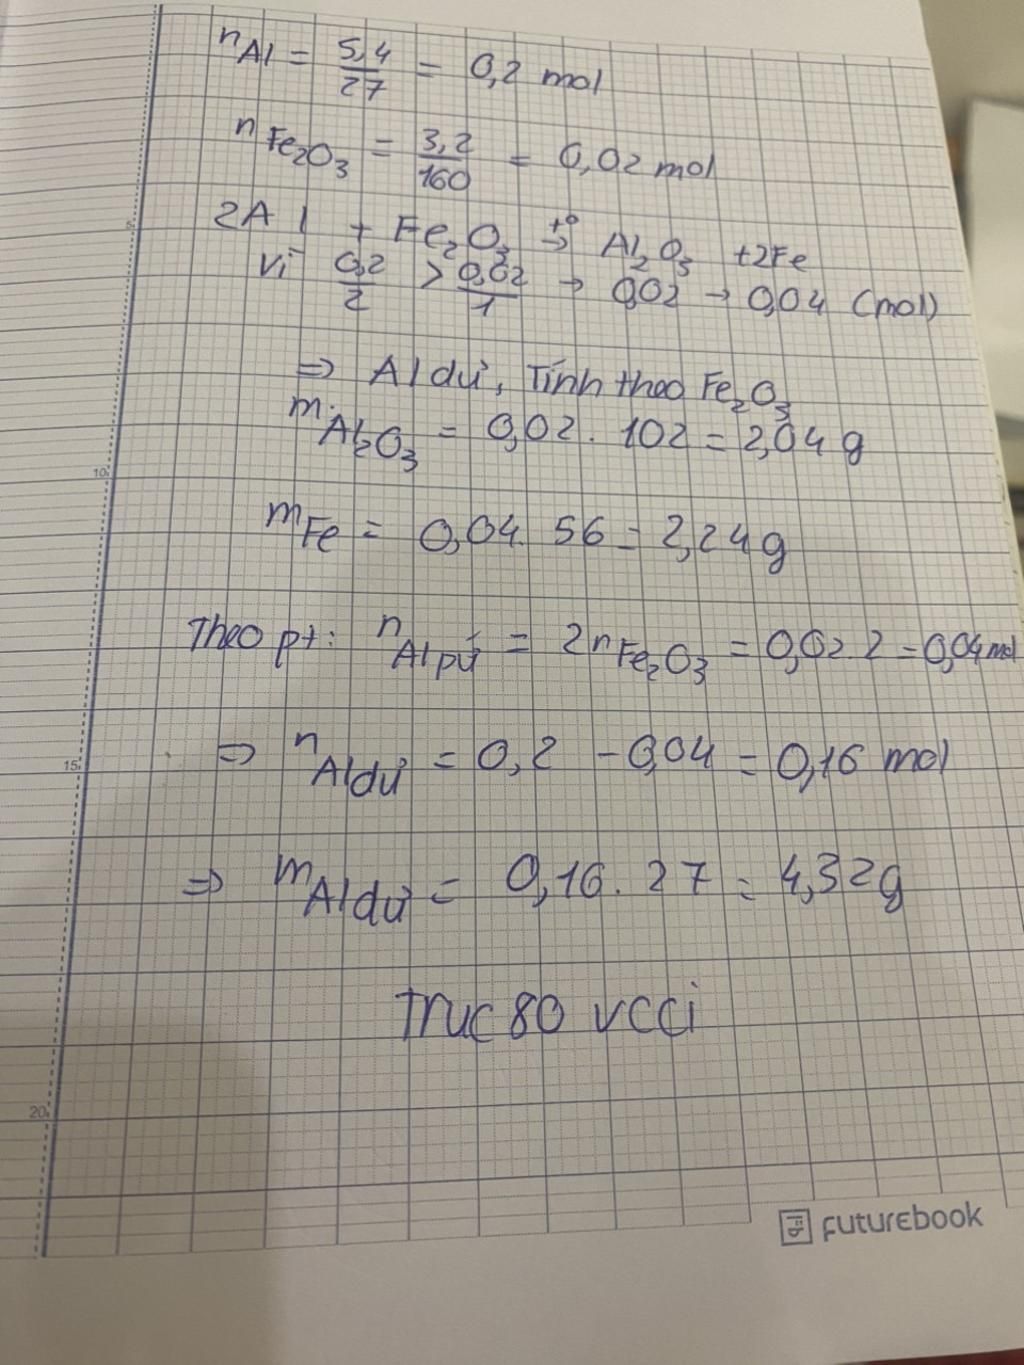 nAl = 5,4/27 = 0,2 mol
nFe₂O₃ = 3,2/160 = 0,02 mol
2Al + Fe₂O₃ t°→ Al₂O₃ +2Fe
Vì 0,2/2 > 0,02/1 → 0,02 → 0,04 (mol)
⇒ Al dư, Tính theo Fe₂O₃
mAl₂O₃ = 0,02 . 102 = 2,04 g
mFe = 0,04 . 56 = 2,24 g
Theo pt: nAl pứ = 2nFe₂O₃ = 0,02.2 = 0,04 mol
⇒ nAl dư = 0,2 - 0,04 = 0,16 mol
⇒ mAl dư = 0,16 . 27 = 4,32g
Truc 80 vcci
5
10
15
20
FUTUREBOOK